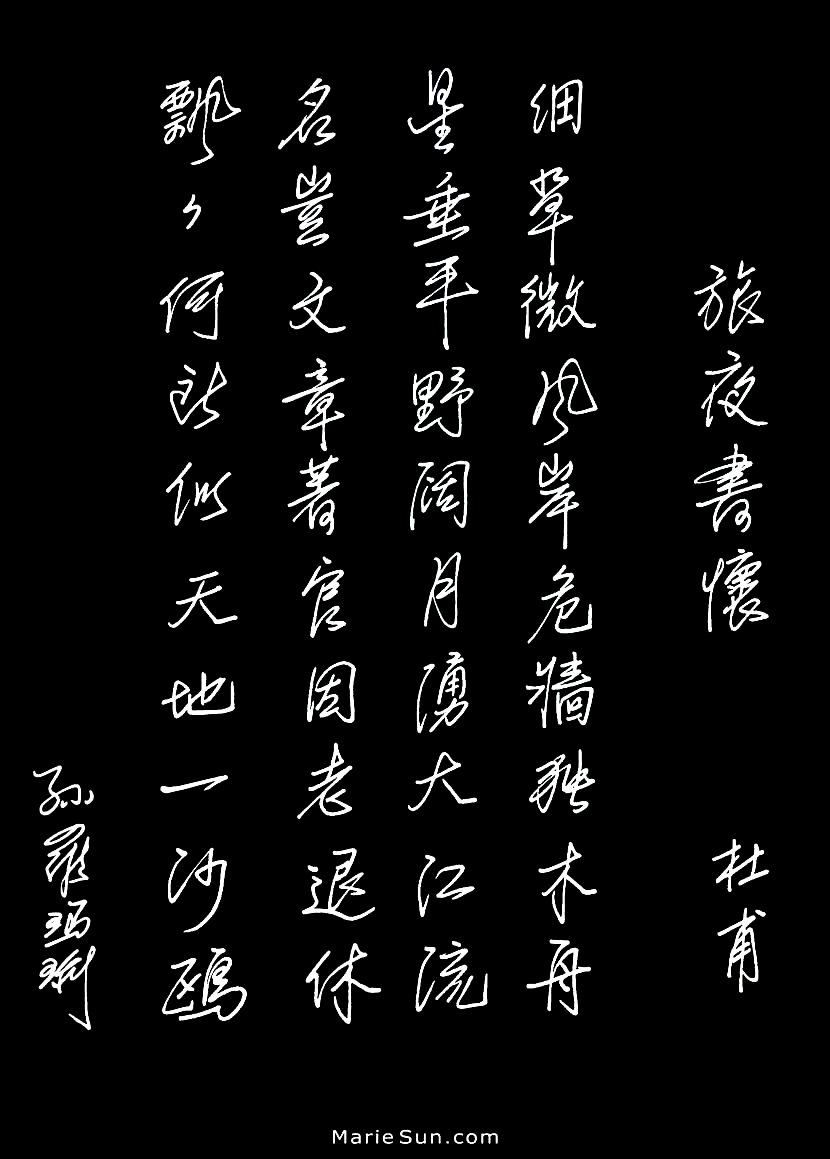 旅夜書懷 杜甫
細草微風岸危牆獨木舟
星垂平野闊月湧大江流
名豈文章著官因老退休
飄々何所似天地一沙鷗
孫羅瑪琍
MarieSun.com